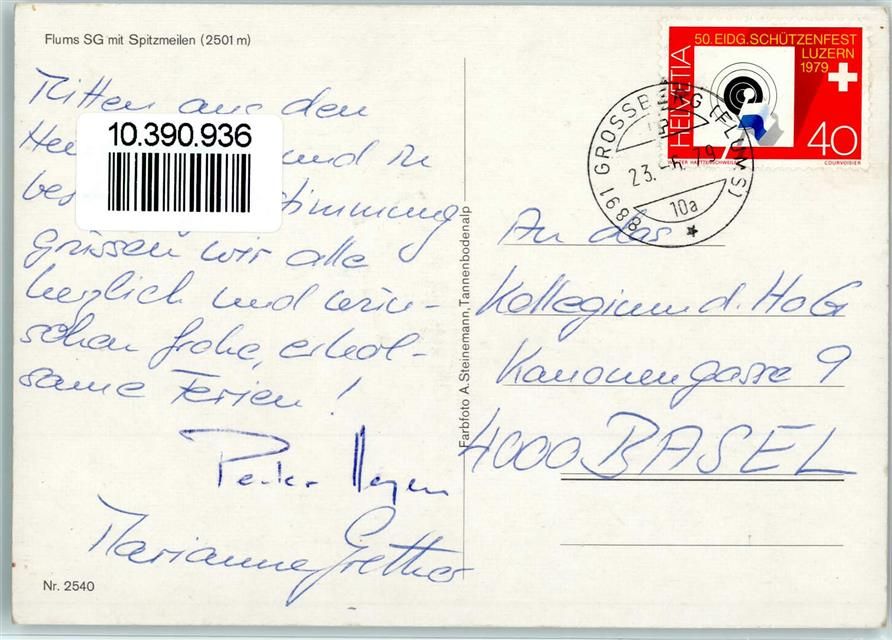 Flums SG mit Spitzmeilen (2501 m)
Mitten aus den
und in
timmung
grüssen wir alle
herzlich und wün-
schen frohe, erhol-
same Ferien!
Peter Meyer
Marianne Grether
Nr. 2540
10.390.936
Farbfoto A. Steinemann, Tannenbodenalp
50. EIDG. SCHÜTZENFEST
LUZERN
1979
HELVETIA
40
COURVOISIER
8891 GROSSBERG (FLUMS)
10a
An das
Kollegium d. HoG
Kanonengasse 9
4000 BASEL